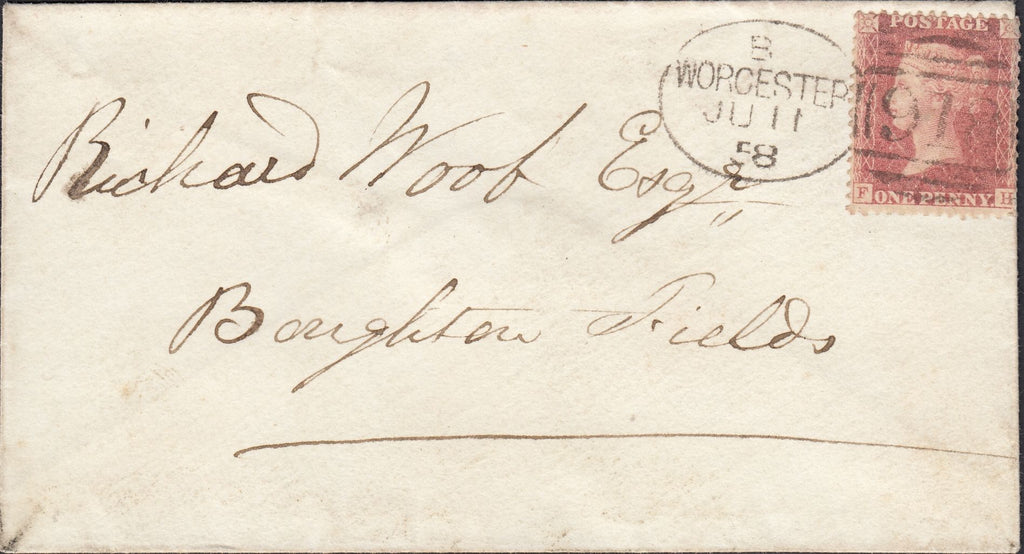 B
WORCESTER
JU 11
58
POSTAGE
91
F ONE PENNY H
Richard Woof Esqr
Boughton Fields